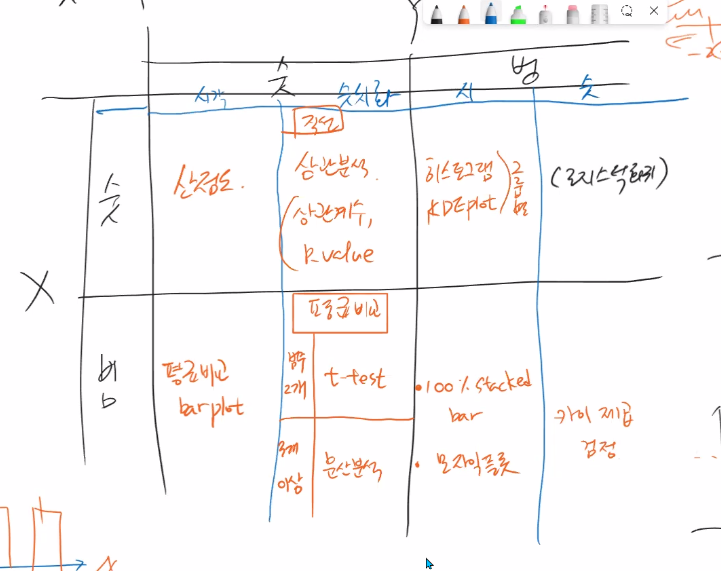 숫
범
시각
숫시화
시
숫
직선
숫
산점도.
상관분석.
(상관계수,
P-value
히스토그램
KDEplot
그룹
별
(로지스틱회귀)
X
평균비교
범
평균비교
bar plot
범주
2개
t-test
3개
이상
분산분석
• 100% stacked
bar
• 모자익플롯
카이 제곱
검정